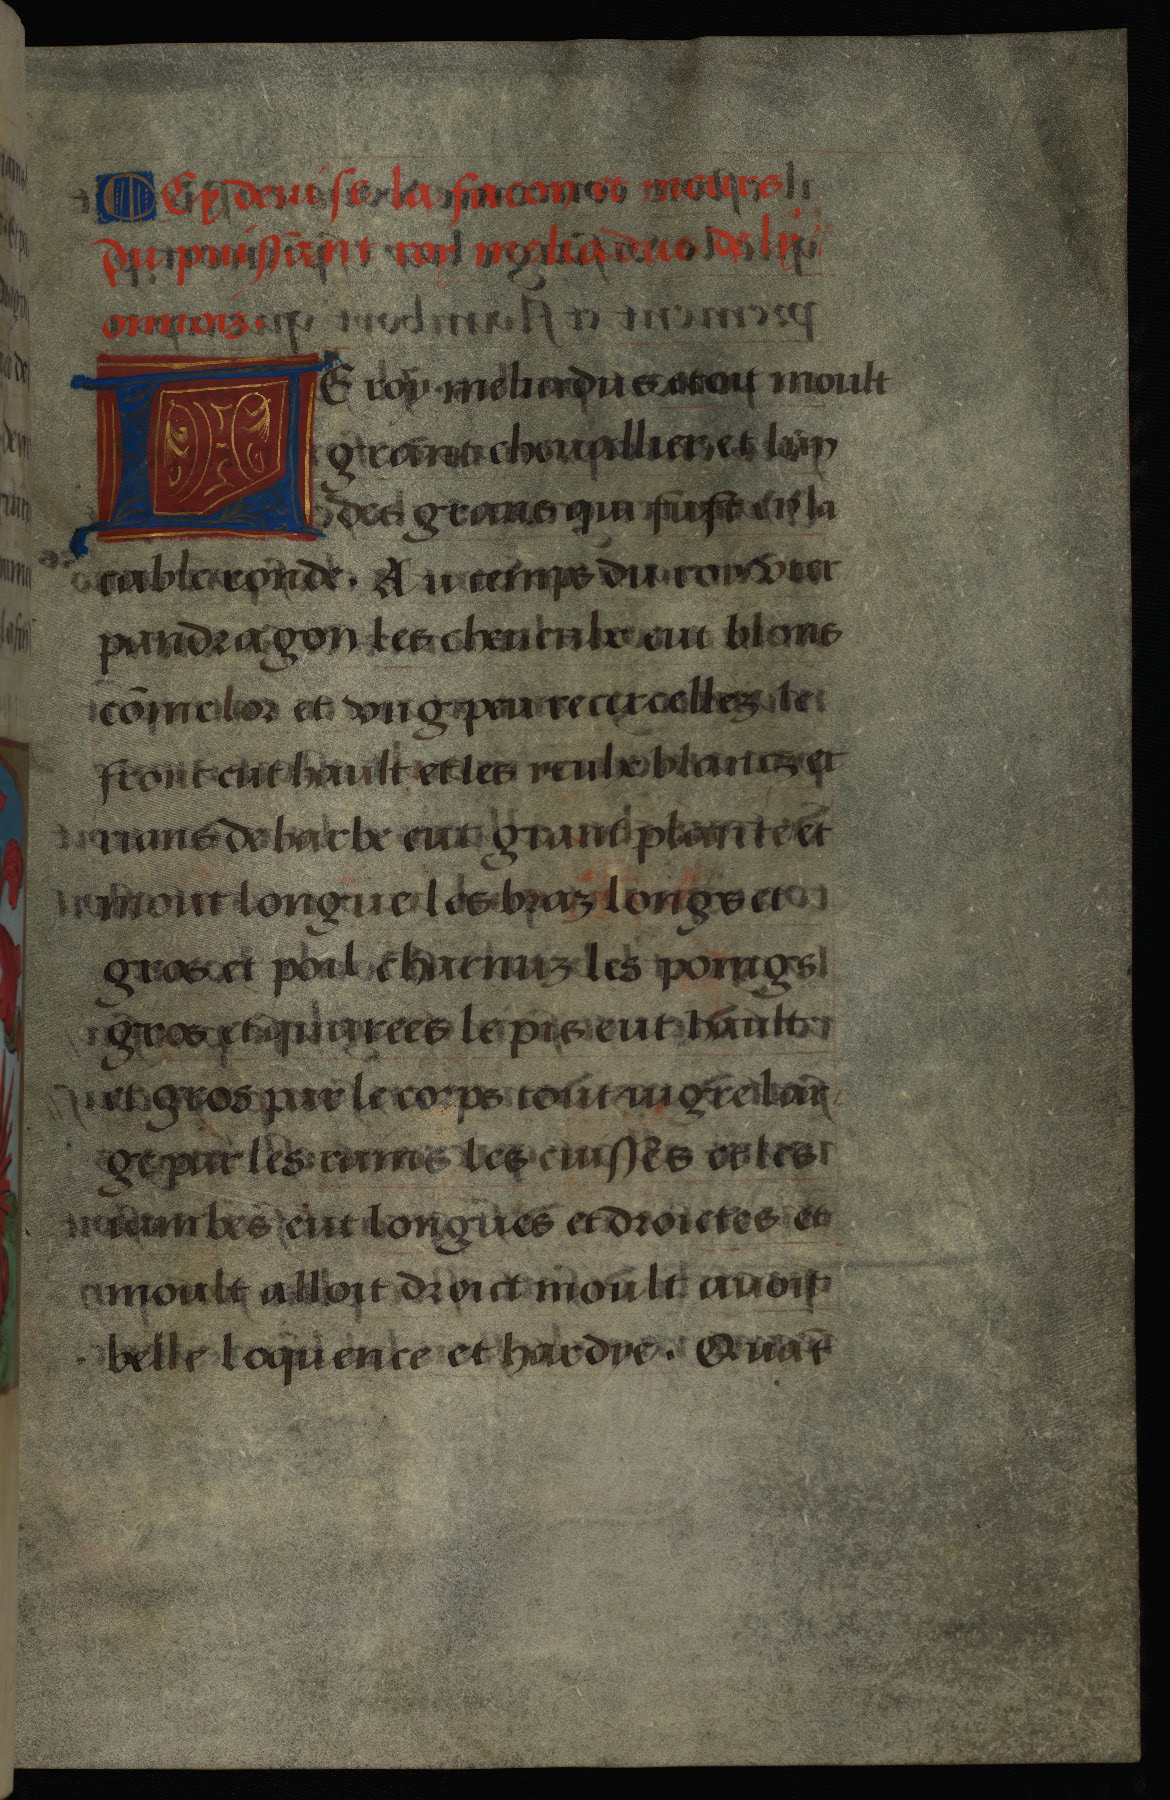 Cy devise la facon et meurs
du puissant roy meliadus de ly
onnois.
LE roy meliadus estoit moult
grant chevallier et lun
des grans qui fust en la
table ronde. Au temps du roy Vter
pandragon les cheueulx eut blons
cōme lor et vng peu recercellez le
front eut hault et les yeulx blancz et
rians de barbe eut grant plante et
mout longue les braz longs et
gros et poil charnuz les poings
gros et quarrees le pis eut hault
et gros par le corps tout migre lar
ge par les rains les cuisses et les
iambes eut longues et droictes et
moult alloit droict moult auoit
belle loquence et hardye. Quāt